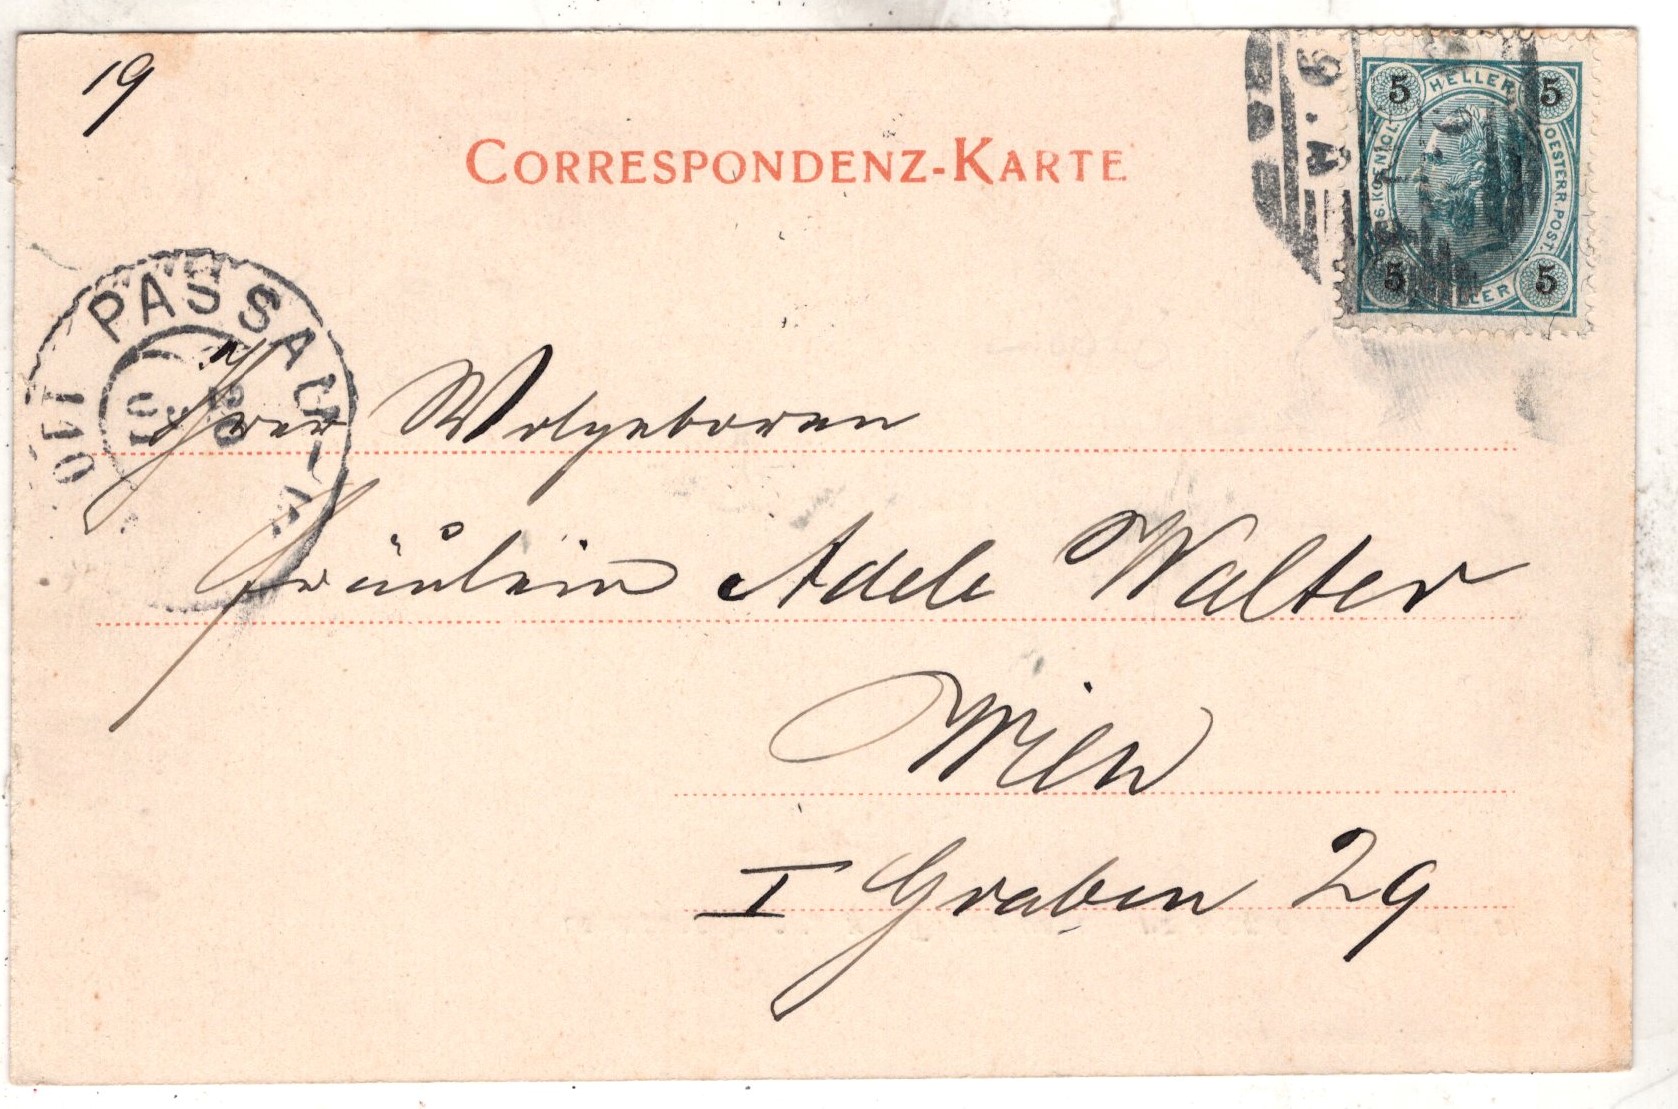 19
CORRESPONDENZ-KARTE
5 HELLER 5
OESTERR. POST.
5 HELLER 5
PASSAU
Ihrer Wolgeboren
Fräulein Adele Walter
Wien
I Graben 29